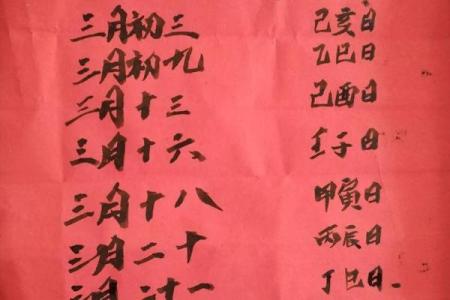 三月初三 己亥日
三月初九 乙巳日
三月十三 己酉日
三月十六 壬子日
三月十八 甲寅日
三月二十 丙辰日
三月二十一 丁巳日.